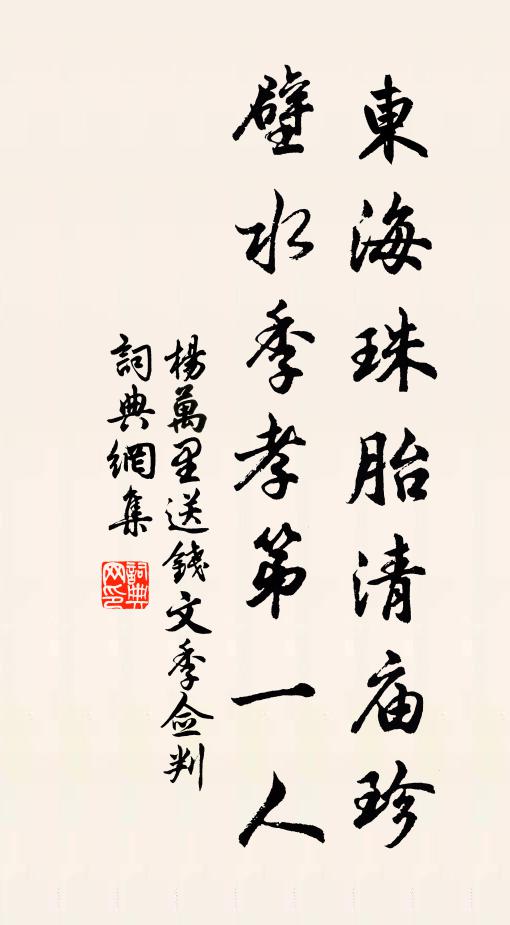 東海珠胎清庙珍
壁水季孝第一人
楊萬里送錢文季僉判
詞典網集
詞典网印